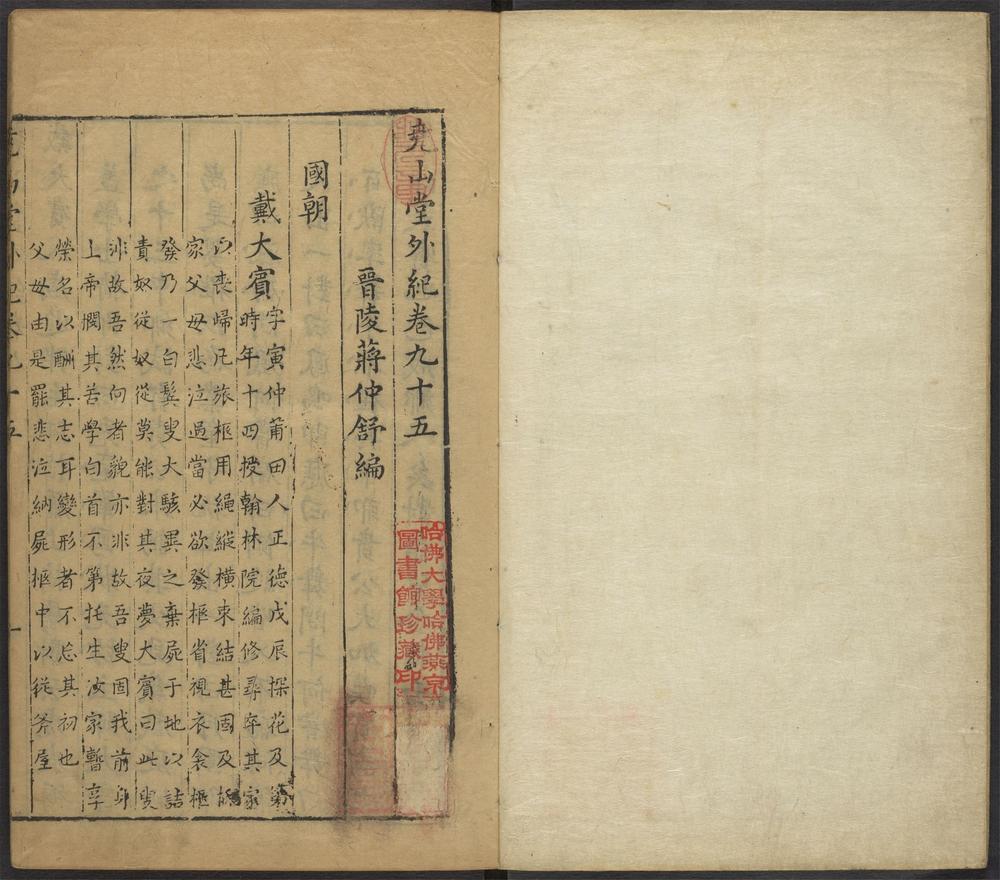 堯山堂外紀卷九十五
晉陵蔣仲舒編
國朝
戴大賓
字寅仲莆田人正德戊辰探花及第
時年十四授翰林院編修尋卒其家
以喪歸凡旅柩用繩縱橫束結甚固及
家父母悲泣過當必欲發柩省視衣衾柩
發乃一白鬂叟大駭異之棄屍于地以詰
責奴從奴從莫能對其夜夢大賓曰此叟
非故吾然向者貌亦非故吾叟固我前身
上帝憫其苦學白首不第托生汝家暫享
榮名以酬其志耳變形者不忘其初也
父母由是罷悲泣納屍柩中以從斧屋
堯山堂外紀卷九十五 一
哈佛大學哈佛燕京
圖書館珍藏印